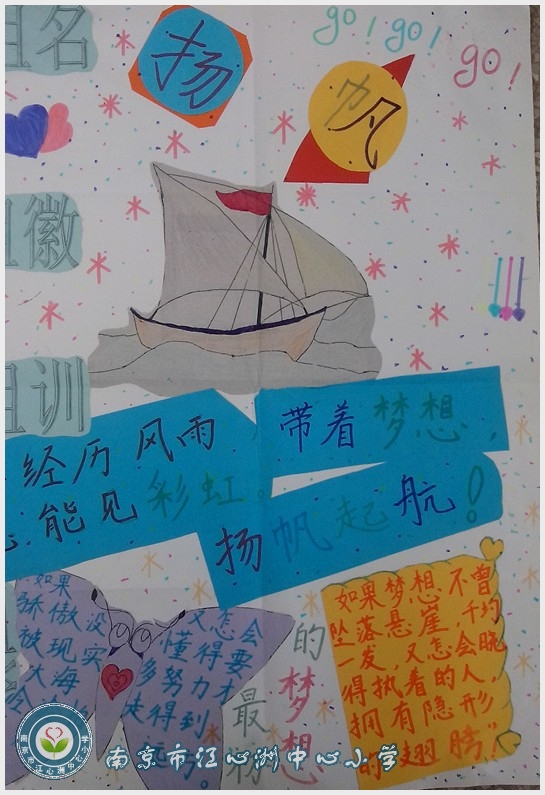 名
扬
帆
go！go！go！
徽
训
经历风雨
能见彩虹。
带着梦想，
扬帆起航！
如果
骄傲没
被现实
大海
又怎会
懂得要
多努力才
走得到
远方。
的
梦想
最
如果梦想不曾
坠落悬崖，千钧
一发，又怎会晓
得执着的人，
拥有隐形
的翅膀
南京市江心洲中心小学